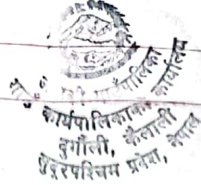 गाउँपालिका
कार्यपालिकाको कार्यालय
दुर्गौली, कैलाली
सुदूरपश्चिम प्रदेश, नेपाल